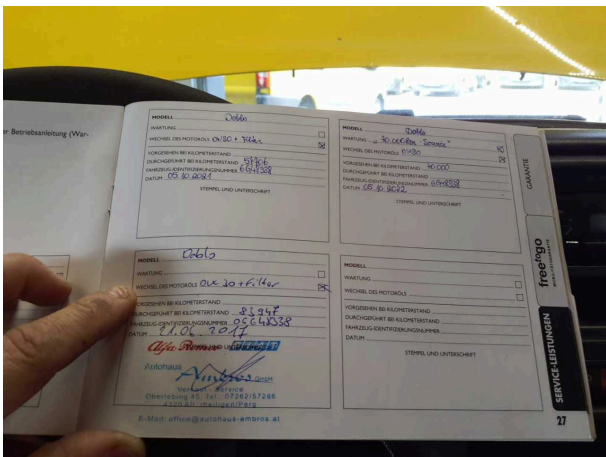 er Betriebsanleitung (War-
MODELL Doblo
WARTUNG
WECHSEL DES MOTORÖLS 0W30 + Filter
VORGESEHEN BEI KILOMETERSTAND
DURCHGEFÜHRT BEI KILOMETERSTAND
FAHRZEUG-IDENTIFIZIERUNGSNUMMER 6648538
DATUM 05.10.2021
STEMPEL UND UNTERSCHRIFT
MODELL Doblo
WARTUNG "70.000 Km Service"
WECHSEL DES MOTORÖLS 0W30
VORGESEHEN BEI KILOMETERSTAND
DURCHGEFÜHRT BEI KILOMETERSTAND 70.000
FAHRZEUG-IDENTIFIZIERUNGSNUMMER 6648538
DATUM 05.10.2022
STEMPEL UND UNTERSCHRIFT
MODELL Doblo
WARTUNG
WECHSEL DES MOTORÖLS 0W30 + Filter
VORGESEHEN BEI KILOMETERSTAND
DURCHGEFÜHRT BEI KILOMETERSTAND 83947
FAHRZEUG-IDENTIFIZIERUNGSNUMMER 06648538
DATUM 21.06.2017
Alfa Romeo
Autohaus
Ambros GmbH
Verkauf - Service
Oberlebing 45, Tel. 07262/57286
4320 Allerheiligen/Perg
E-Mail: office@autohaus-ambros.at
MODELL
WARTUNG
WECHSEL DES MOTORÖLS
VORGESEHEN BEI KILOMETERSTAND
DURCHGEFÜHRT BEI KILOMETERSTAND
FAHRZEUG-IDENTIFIZIERUNGSNUMMER
DATUM
STEMPEL UND UNTERSCHRIFT
GARANTIE
freetogo
MOBILITÄTSGARANTIE
SERVICE-LEISTUNGEN
27